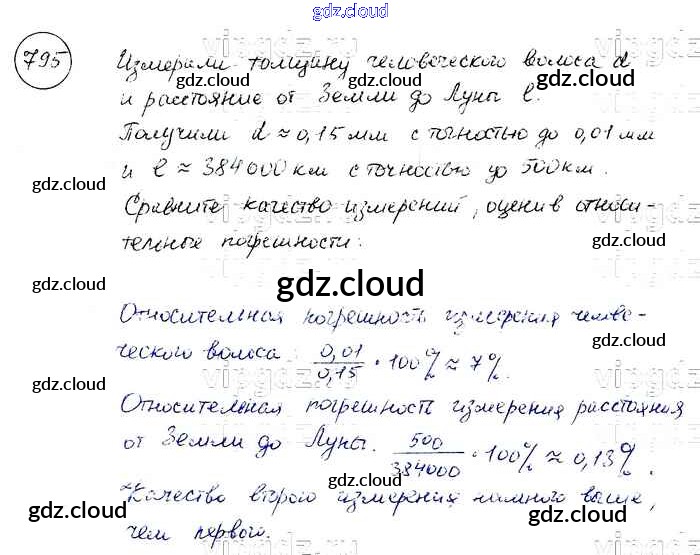 gdz.cloud
795 Измеряли толщину человеческого волоса d
и расстояние от Земли до Луны l.
Получили d ≈ 0,15 мм с точностью до 0,01 мм
и l ≈ 384000 км с точностью до 500 км.
Сравните качество измерений, оценив относи-
тельные погрешности:
gdz.cloud
Относительная погрешность измерения челове-
ческого волоса: 0,01/0,15 · 100% ≈ 7%.
Относительная погрешность измерения расстояния
от Земли до Луны. 500/384000 · 100% ≈ 0,13%.
Качество второго измерения намного выше,
чем первого.